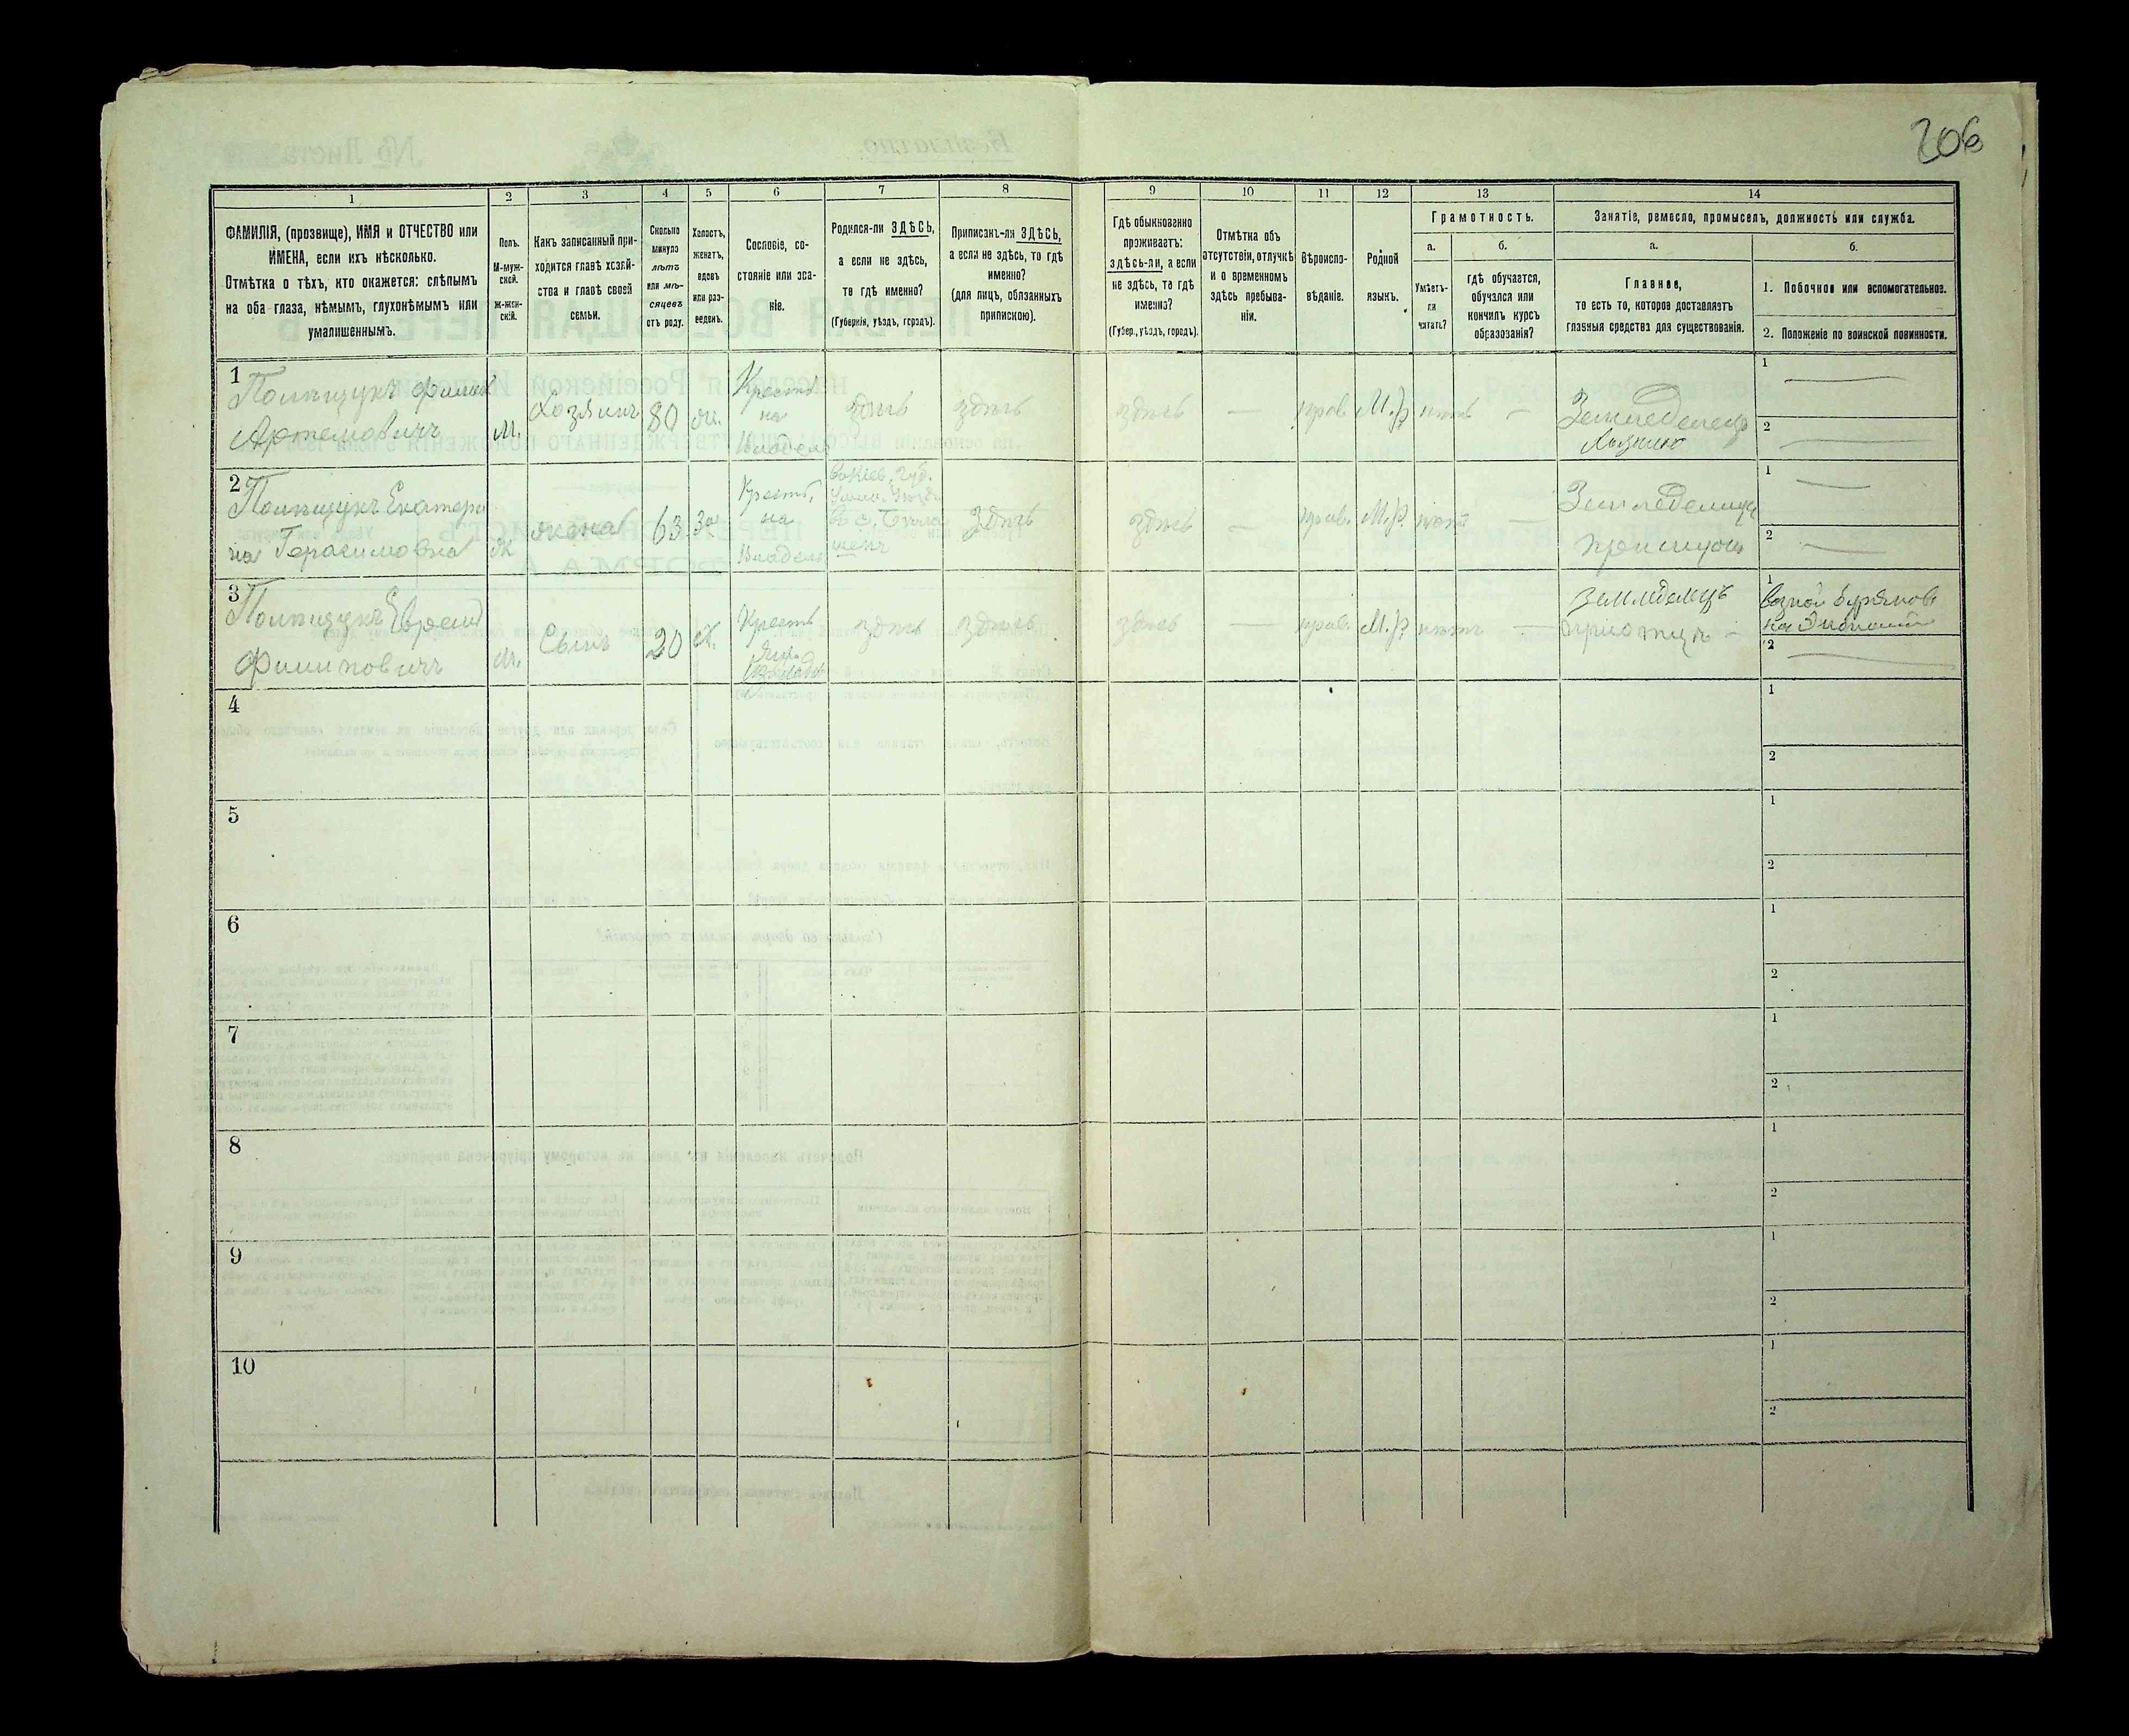 206
1
2
3
4
5
6
7
8
9
10
11
12
13
14
ФАМИЛІЯ, (прозвище), ИМЯ и ОТЧЕСТВО или
ИМЕНА, если ихъ нѣсколько.
Отмѣтка о тѣхъ, кто окажется: слѣпымъ
на оба глаза, нѣмымъ, глухонѣмымъ или
умалишеннымъ.
Полъ.
М-муж-
ской.
ж-жен-
скій.
Какъ записанный при-
ходится главѣ хозяй-
ства и главѣ своей
семьи.
Сколько
минуло
лѣтъ
или мѣ-
сяцевъ
отъ роду.
Холостъ,
женатъ,
вдовъ
или раз-
веденъ.
Сословіе, со-
стояніе или зва-
ніе.
Родился-ли ЗДѢСЬ,
а если не здѣсь,
то гдѣ именно?
(Губернія, уѣздъ, городъ).
Приписанъ-ли ЗДѢСЬ,
а если не здѣсь, то гдѣ
именно?
(для лицъ, обязанныхъ
припискою).
Гдѣ обыкновенно
проживаетъ:
здѣсь-ли, а если
не здѣсь, то гдѣ
именно?
(Губер., уѣздъ, городъ).
Отмѣтка объ
отсутствіи, отлучкѣ
и о временномъ
здѣсь пребыва-
ніи.
Вѣроиспо-
вѣданіе.
Родной
языкъ.
Грамотность.
а.
б.
Умѣетъ-
ли
читать?
гдѣ обучается,
обучался или
кончилъ курсъ
образованія?
Занятіе, ремесло, промыселъ, должность или служба.
а.
б.
Главное,
то есть то, которое доставляетъ
главныя средства для существованія.
1. Побочное или вспомогательное.
2. Положеніе по воинской повинности.
1
Полищукъ Филипъ
Артемовичъ
М.
Хозяинъ
80
Крестья
на
Владѣл
здѣсь
здѣсь
здѣсь
—
прав.
М.Р.
нѣтъ
—
Земледелецъ
Хозяинъ
1
2
2
Полищукъ Екатери
на Герасимовна
Ж
жена
63
За
Крест.
на
Владѣл
въ Кіев. Губ.
здѣсь
здѣсь
—
прав.
М.Р.
нѣтъ
—
Земледелица
при мужѣ
1
2
3
Полищукъ
Филиповичъ
М.
Сынъ
20
Крестья
здѣсь
здѣсь
здѣсь
—
прав.
М.Р.
нѣтъ
—
земледелецъ
при отцѣ
1
2
4
1
2
5
1
2
6
1
2
7
1
2
8
1
2
9
1
2
10
1
2